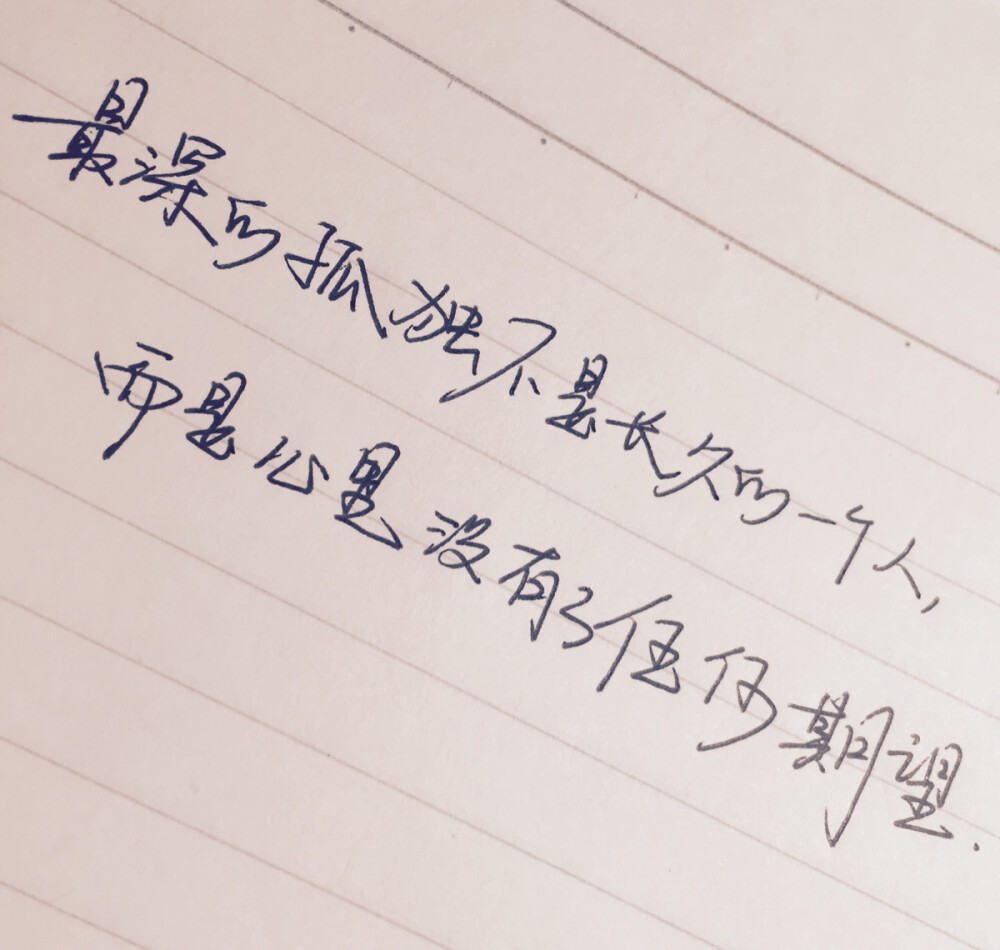 最深的孤独不是长久的一个人,
而是心里没有了任何期望.